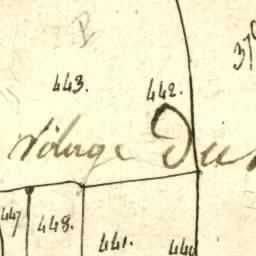 P
443. 442.
Vilage Du
447 448. 441. 440